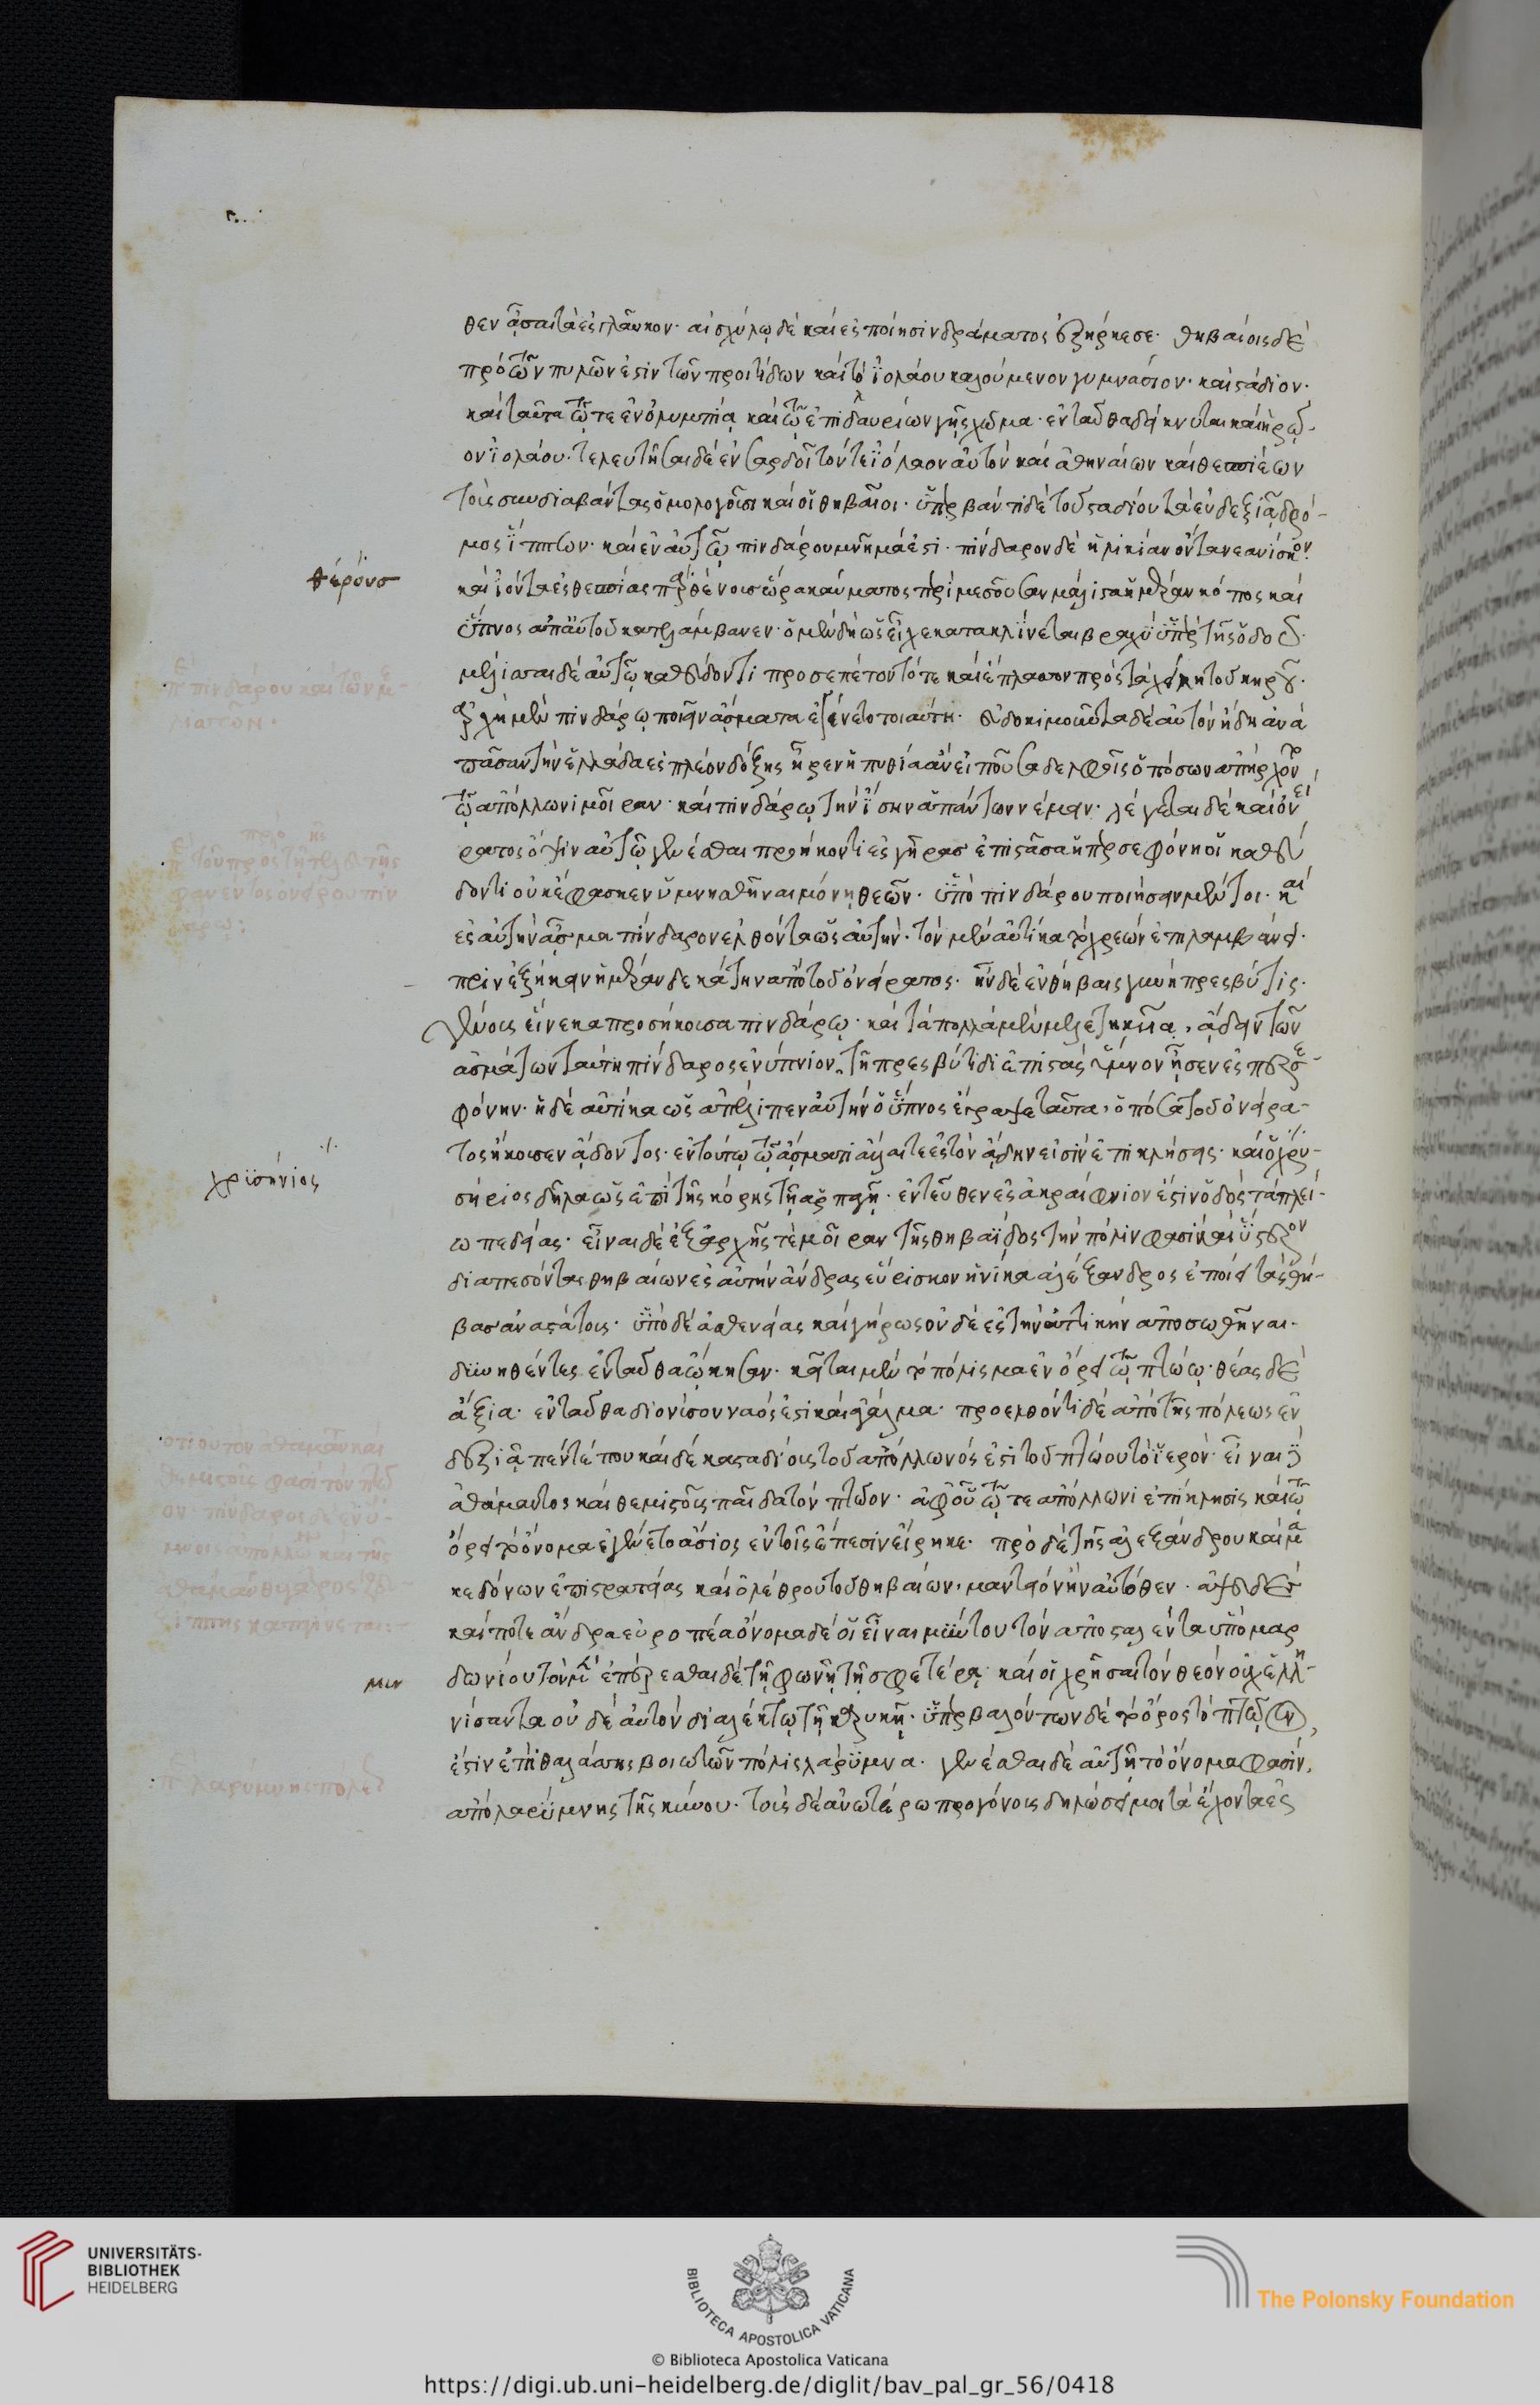 θεν ᾆσαι τὰ ἐς γλαῦκον· αἰσχύλῳ δὲ καὶ ἐς ποίησιν δράματος ἐξήρκεσε· θηβαίοις δὲ
πρὸ τῶν πυλῶν ἐστὶν τῶν προιτίδων καὶ τὸ ἰολάου καλούμενον γυμνάσιον· καὶ στάδιον·
κατὰ ταῦτα τῷ τε ἐν ὀλυμπίᾳ καὶ τῷ ἐπιδαυρίων γῆς χῶμα· ἐνταῦθα δείκνυται καὶ ἡρῷ-
ον ἰολάου· τελευτῆσαι δὲ ἐν σαρδοῖ τόν τε ἰόλαον αὐτὸν καὶ ἀθηναίων καὶ θεσπιέων
τοὺς συνδιαβάντας ὁμολογοῦσι καὶ οἱ θηβαῖοι· ὑπερβάντι δὲ τοῦ σταδίου τὰ ἐν δεξιᾷ δρό-
μος ἵππων· καὶ ἐν αὐτῷ πινδάρου μνῆμά ἐστι· πίνδαρον δὲ ἡλικίαν ὄντα νεανίσκον
θέρουσ
καὶ ἰόντα ἐς θεσπιὰς παρθένοις ὥρα καύματος περὶ μεσοῦσαν μάλιστα ἡμέραν κόπος καὶ
ὕπνος ἀπ' αὐτοῦ κατελάμβανεν· ὁ μὲν δὴ ὡς εἶχε κατακλίνεται βραχὺ ὑπὲρ τῆς ὁδοῦ·
μέλισσαι δὲ αὐτῷ καθεύδοντι προσεπέτοντό τε καὶ ἔπλασσον πρὸς τὰ χείλη τοῦ κηροῦ·
ἀρχὴ μὲν πινδάρῳ ποιεῖν ᾄσματα ἐγένετο τοιαύτη· εὐδοκιμοῦντα δὲ αὐτὸν ἤδη ἀνὰ
πᾶσαν τὴν ἑλλάδα ἐς πλέον δόξης ἦρεν ἡ πυθία ἀνειποῦσα δελφοῖς ὁπόσων ἀπήρχοντο
τῷ ἀπόλλωνι μοῖραν· καὶ πινδάρῳ τὴν ἴσην ἁπάντων νέμειν· λέγεται δὲ καὶ ὀνεί
ρατος ὄψιν αὐτῷ γενέσθαι προήκοντι ἐς γῆρας ἐπιστᾶσα ἡ περσεφόνη οἱ καθεύ
δοντι οὐκ ἔφασκεν ὑμνηθῆναι μόνη θεῶν· ὑπὸ πινδάρου ποιήσειν μέντοι· καὶ
ἐς αὐτὴν ᾆσμα πίνδαρον ἐλθόντα ὡς αὐτήν· τὸν μὲν αὐτίκα τὸ χρεὼν ἐπιλαμβάνει·
πρὶν ἐξήκειν ἡμέραν δεκάτην ἀπὸ τοῦ ὀνείρατος· ἦν δὲ ἐν θήβαις γυνὴ πρεσβύτις·
γένους εἵνεκα προσήκουσα πινδάρῳ· καὶ τὰ πολλὰ μεμελετηκυῖα, ᾄδειν τῶν
ᾀσμάτων ταύτῃ πίνδαρος ἐνύπνιον τῇ πρεσβύτιδι ἐπιστὰς ὕμνον ᾖσεν ἐς περσε-
φόνην· ἡ δὲ αὐτίκα ὡς ἀπέλιπεν αὐτὴν ὁ ὕπνος ἔγραψε ταῦτα, ὁπόσα τοῦ ὀνείρα-
τος ἤκουσεν ᾄδοντος· ἐν τούτῳ τῷ ᾄσματι ἄλλαι τε ἐς τὸν ἅδην εἰσὶν ἐπικλήσεις· καὶ ὁ χρυ-
χρισήνιος
σήριος δῆλα ὡς ἐπὶ τῆς κόρης τῇ ἁρπαγῇ· ἐντεῦθεν ἐς ἀκραίφνιόν ἐστιν ὁδὸς τὰ πλεί-
ω πεδιάς· εἶναι δὲ ἐξ ἀρχῆς τε μοῖραν τῆς θηβαΐδος τὴν πόλιν φασὶ καὶ ὕστερον
διαπεσόντας θηβαίων ἐς αὐτὴν ἄνδρας εὕρισκον ἡνίκα ἀλέξανδρος ἐποίει τὰς θή-
βας ἀναστάτους· ὑπὸ δὲ ἀσθενείας καὶ γήρως οὐδὲ ἐς τὴν ἀττικὴν ἀποσωθῆναι·
δυνηθέντες ἐνταῦθα ᾤκησαν· κεῖται μὲν τὸ πόλισμα ἐν ὄρει τῷ πτώῳ· θέας δὲ
ἄξια· ἐνταῦθα διονύσου ναός ἐστι καὶ ἄγαλμα· προελθόντι δὲ ἀπὸ τῆς πόλεως ἐν
δεξιᾷ πέντε που καὶ δέκα σταδίους τοῦ ἀπόλλωνός ἐστι τοῦ πτώου τὸ ἱερόν· εἶναι δὲ
ἀθάμαντος καὶ θεμιστοῦς παῖδα τὸν πτῶον· ἀφ' οὗ τῷ τε ἀπόλλωνι ἐπίκλησις καὶ τῷ
ὄρει τὸ ὄνομα ἐγένετο ἄσιος ἐν τοῖς ἔπεσιν εἴρηκε· πρὸ δὲ τῆς ἀλεξάνδρου καὶ μα
κεδόνων ἐπιστρατείας καὶ ὀλέθρου τοῦ θηβαίων, μαντεῖον ἦν αὐτόθεν· ἀψευδὲς
καί ποτε ἄνδρα εὐρωπέα ὄνομα δέ οἱ εἶναι μῦν τοῦτον ἀποσταλέντα ὑπὸ μαρ
μυν
δωνίου τὸν μῦ ἐπέρεσθαι δὲ τῇ φωνῇ τῇ σφετέρᾳ· καί οἱ χρῆσαι τὸν θεὸν οὐχ ἑλλη-
νίσαντα οὐδὲ αὐτὸν διαλέκτῳ τῇ καρικῇ· ὑπερβαλόντων δὲ τὸ ὄρος τὸ πτῷον,
ἔστιν ἐπὶ θαλάσσης βοιωτῶν πόλις λάρυμνα· γενέσθαι δὲ αὐτῇ τὸ ὄνομα φασίν,
ἀπὸ λαρύμνης τῆς κύνου· τοὺς δὲ ἀνωτέρω προγόνους δηλώσει μοι τὰ ἔχοντα ἐς
UNIVERSITÄTS-
BIBLIOTHEK
HEIDELBERG
BIBLIOTECA APOSTOLICA VATICANA
The Polonsky Foundation
© Biblioteca Apostolica Vaticana
https://digi.ub.uni-heidelberg.de/diglit/bav_pal_gr_56/0418